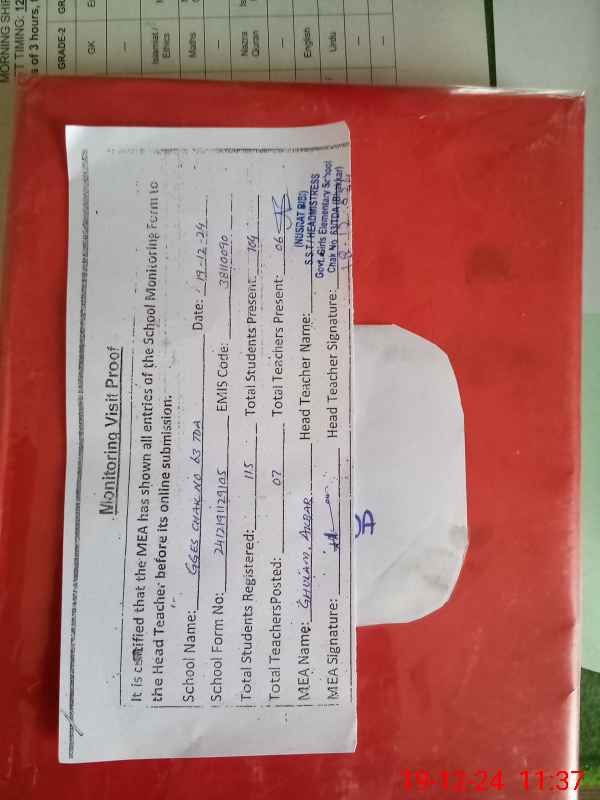 MORNING SHIF
T TIMING: 12
s of 3 hours, t
GRADE-2
GK
Islamiat / Ethics
Maths
Nazra Quran
English
Urdu
Monitoring Visit Proof
It is certified that the MEA has shown all entries of the School Monitoring Form to
the Head Teacher before its online submission.
School Name: GGES CHAK NO 63 TDA Date: 19-12-24
School Form No: 2412191129105 EMIS Code: 38110090
Total Students Registered: 115 Total Students Present: 104
Total TeachersPosted: 07 Total Teachers Present: 06
MEA Name: GHULAM AKBAR Head Teacher Name:
MEA Signature: Head Teacher Signature:
(NUSRAT BIBI)
S.S.T / HEADMISTRESS
Govt. Girls Elementary School
Chak No. 63/TDA (Bhakkar)
19-12-24 11:37